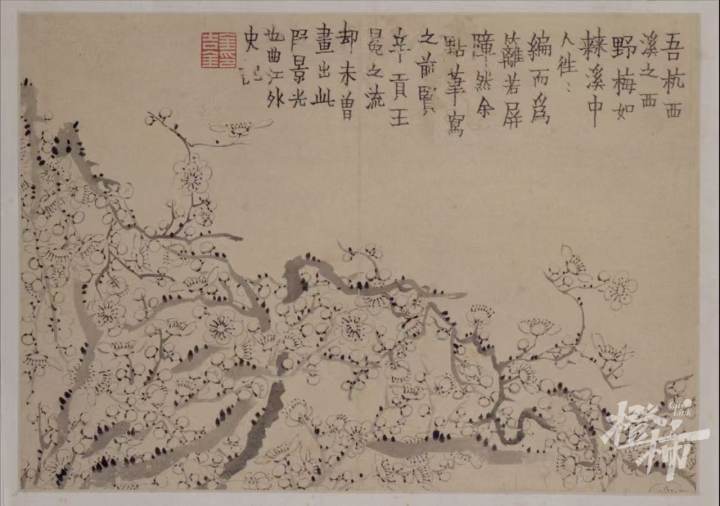 吾杭西
溪之西
野梅如
棘溪中
人徃〻
編而爲
籬若屏
障然余
點筆寫
之前賢
辛貢王
冕之流
却未曾
畫出此
段景光
也曲江外
史記
橙柿